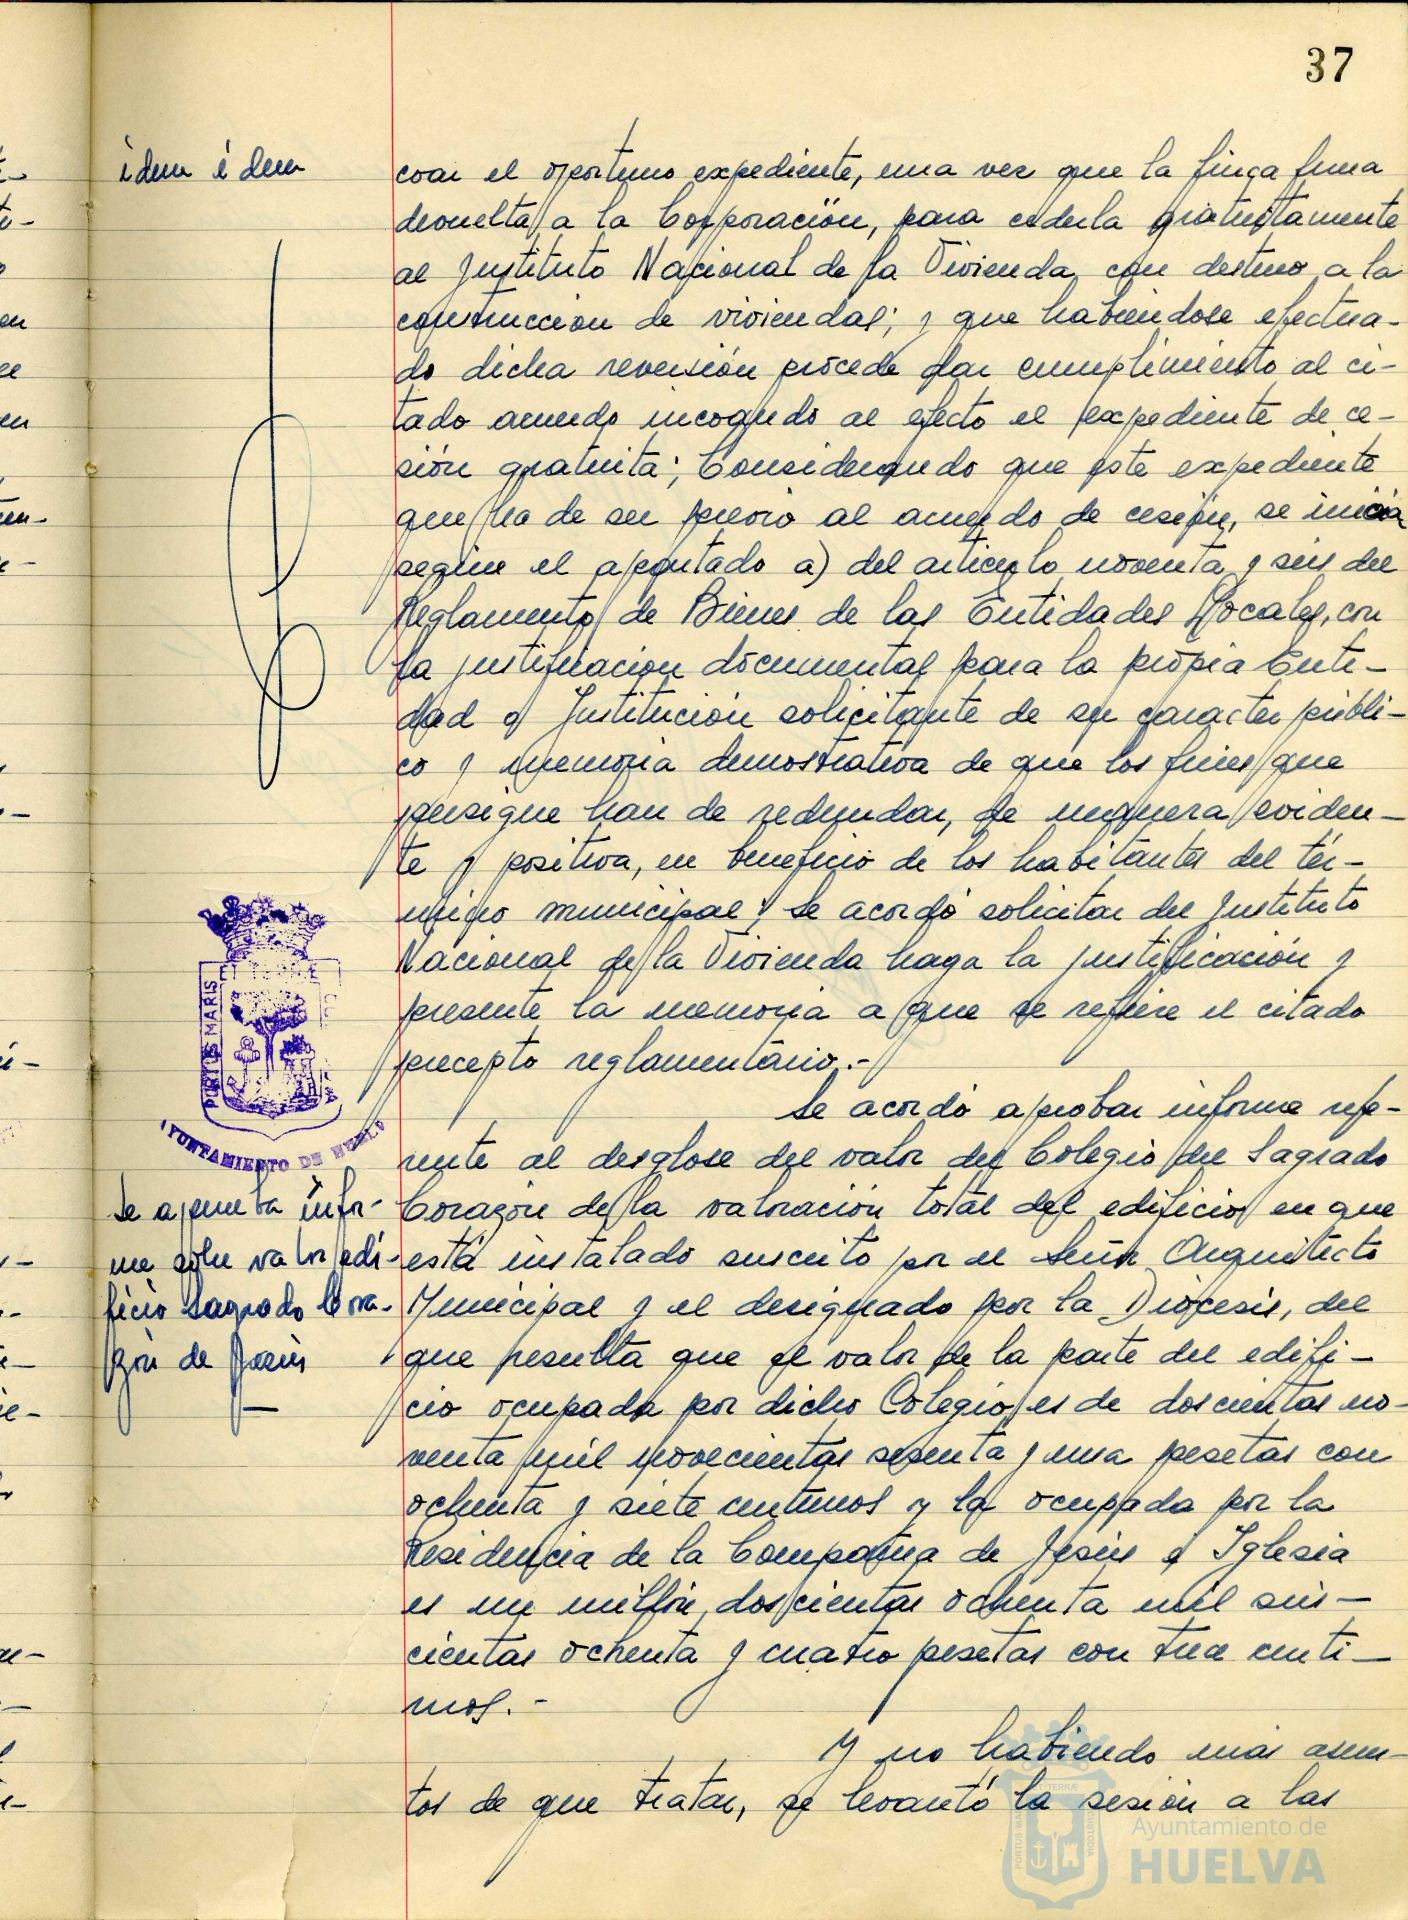 37
idem idem
coar el oportuno expediente, una vez que la finca fuera
devuelta a la Corporación, para cederla gratuitamente
al Instituto Nacional de la Vivienda, con destino a la
construccion de viviendas; y que habiendose efectua-
do dicha reversión procede dar cumplimiento al ci-
tado acuerdo incoando al efecto el expediente de ce-
sión gratuita; Considerando que este expediente
que ha de ser previo al acuerdo de cesión, se inicia
según el apartado a) del articulo noventa y seis del
Reglamento de Bienes de las Entidades Locales, con
la justificacion documental para la propia Enti-
dad o Institución solicitante de su caracter públi-
co y memoria demostrativa de que los fines que
persigue han de redundar, de manera eviden-
te y positiva, en beneficio de los habitantes del tér-
mino municipal; Se acordó solicitar del Instituto
Nacional de la Vivienda haga la justificación y
presente la memoria a que se refiere el citado
precepto reglamentario.-
PORTUS MARIS ET TERRÆ
AYUNTAMIENTO DE HUELVA
Se aprueba infor-
me sobre valor edi-
ficio Sagrado Cora-
zón de Jesús
Se acordó aprobar informe refe-
rente al desglose del valor del Colegio del Sagrado
Corazón de la valoración total del edificio en que
está instalado suscrito por el Señor Arquitecto
Municipal y el designado por la Diócesis, del
que resulta que el valor de la parte del edifi-
cio ocupada por dicho Colegio es de doscientas no-
venta mil novecientas sesenta y una pesetas con
ochenta y siete centimos y la ocupada por la
Residencia de la Compañia de Jesús e Iglesia
es un millón, doscientas ochenta mil seis-
cientas ochenta y cuatro pesetas con trece centi-
mos.-
Y no habiendo más asun-
tos de que tratar, se levantó la sesión a las
Ayuntamiento de
HUELVA